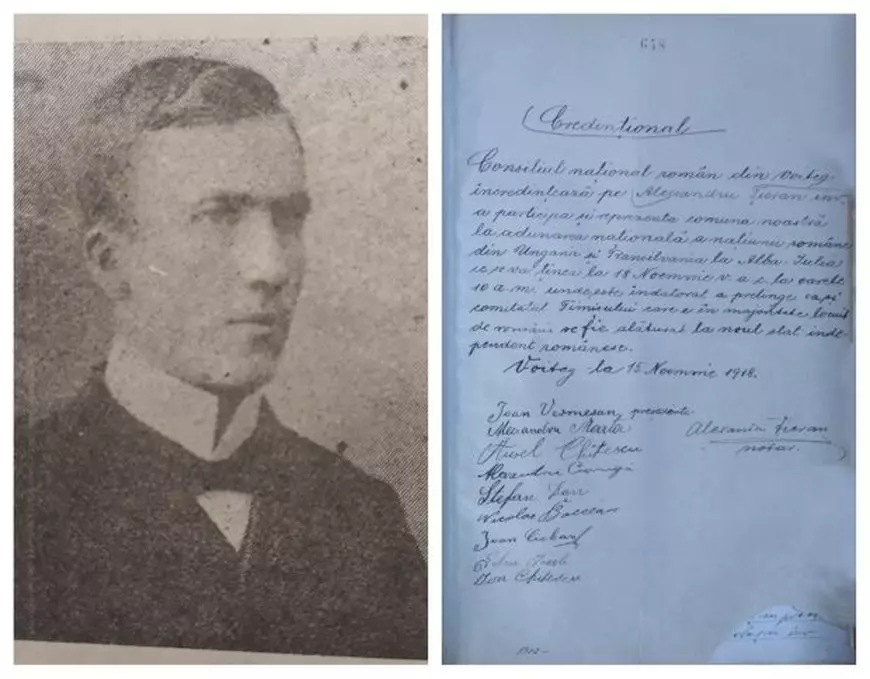 648
Credințional
Consiliul național român din Voiteg
încredințează pe Alexandru
a participa și reprezenta comuna noastră
la adunarea națională a națiunii române
din Ungaria și Transilvania la Alba-Iulia
ce se va ținea la 18 Noemvrie v. a. c. la oarele
10 a.m. unde este îndatorat a pretinge ca și
comitatul Timișului care e în majoritate locuit
de români se fie alăturat la noul stat inde-
pendent românesc.
Voiteg la 15 Noemvrie 1918.
Ioan Vermeșan, președinte
Alexandru Marta
Aurel Chițescu
Alexandru
notar.
Alexandru
Ștefan
Nicolae
Ioan Ciobanu
Ion Chițescu